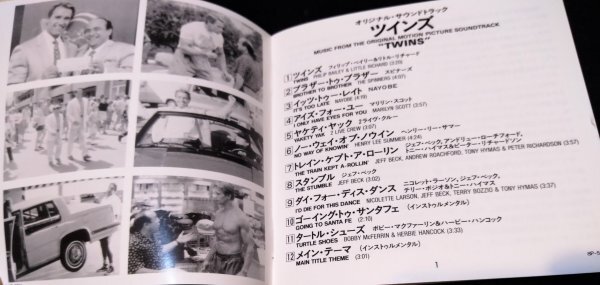 オリジナル・サウンドトラック
ツインズ
MUSIC FROM THE ORIGINAL MOTION PICTURE SOUNDTRACK
"TWINS"
1 ツインズ フィリップ・ベイリー&リトル・リチャード
TWINS PHILIP BAILEY & LITTLE RICHARD (3:29)
2 ブラザー・トゥ・ブラザー スピナーズ
BROTHER TO BROTHER THE SPINNERS
3 イッツ・トゥー・レイト NAYOBE
IT'S TOO LATE NAYOBE (4:19)
4 アイズ・フォー・ユー マリリン・スコット
I ONLY HAVE EYES FOR YOU MARILYN SCOTT (3:57)
5 ヤケティ・ヤック 2ライヴ・クルー
YAKETY YAK 2 LIVE CREW (3:07)
6 ノー・ウェイ・オブ・ノウイン ヘンリー・リー・サマー
NO WAY OF KNOWIN' HENRY LEE SUMMER (4:24)
7 トレイン・ケプト・ア・ローリン ジェフ・ベック, アンドリュー・ローチフォード,
トニー・ハイマス&ピーター・リチャードソン
THE TRAIN KEPT A-ROLLIN' JEFF BECK, ANDREW ROACHFORD, TONY HYMAS & PETER RICHARDSON (3:57)
8 スタンブル ジェフ・ベック
THE STUMBLE JEFF BECK (3:02)
9 ダイ・フォー・ディス・ダンス ニコレット・ラーソン, ジェフ・ベック,
テリー・ボジオ&トニー・ハイマス
I'D DIE FOR THIS DANCE NICOLETTE LARSON, JEFF BECK, TERRY BOZZIO & TONY HYMAS
10 ゴーイング・トゥ・サンタフェ (インストゥルメンタル)
GOING TO SANTA FE (2:16)
11 タートル・シューズ ボビー・マクファーリン&ハービー・ハンコック
TURTLE SHOES BOBBY McFERRIN & HERBIE HANCOCK (3:33)
12 メイン・テーマ (インストゥルメンタル)
MAIN TITLE THEME (3:01)
1